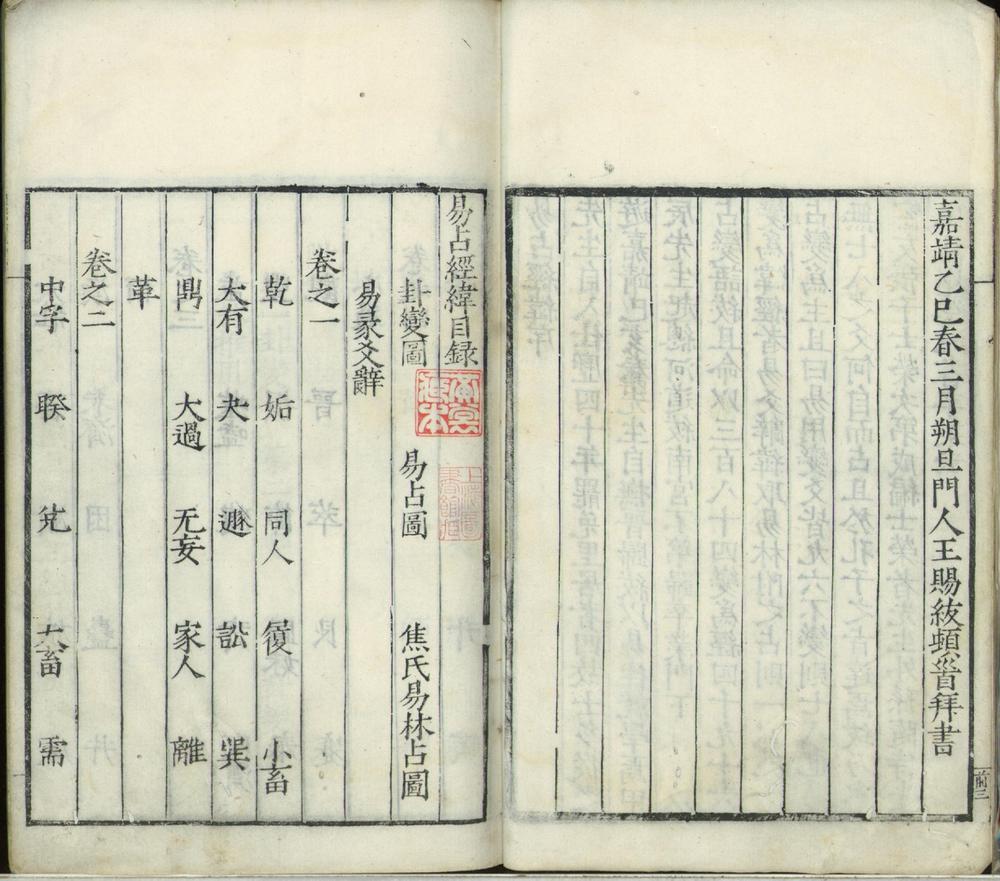 嘉靖乙巳春三月朔旦門人王賜紱頓首拜書
前三
易占經緯目録
卦變圖 易占圖 焦氏易林占圖
易彖爻辭
卷之一
乾 姤 同人 履 小畜
大有 夬 遯 訟 巽
鼎 大過 无妄 家人 離
革
卷之二
中孚 睽 兊 大畜 需